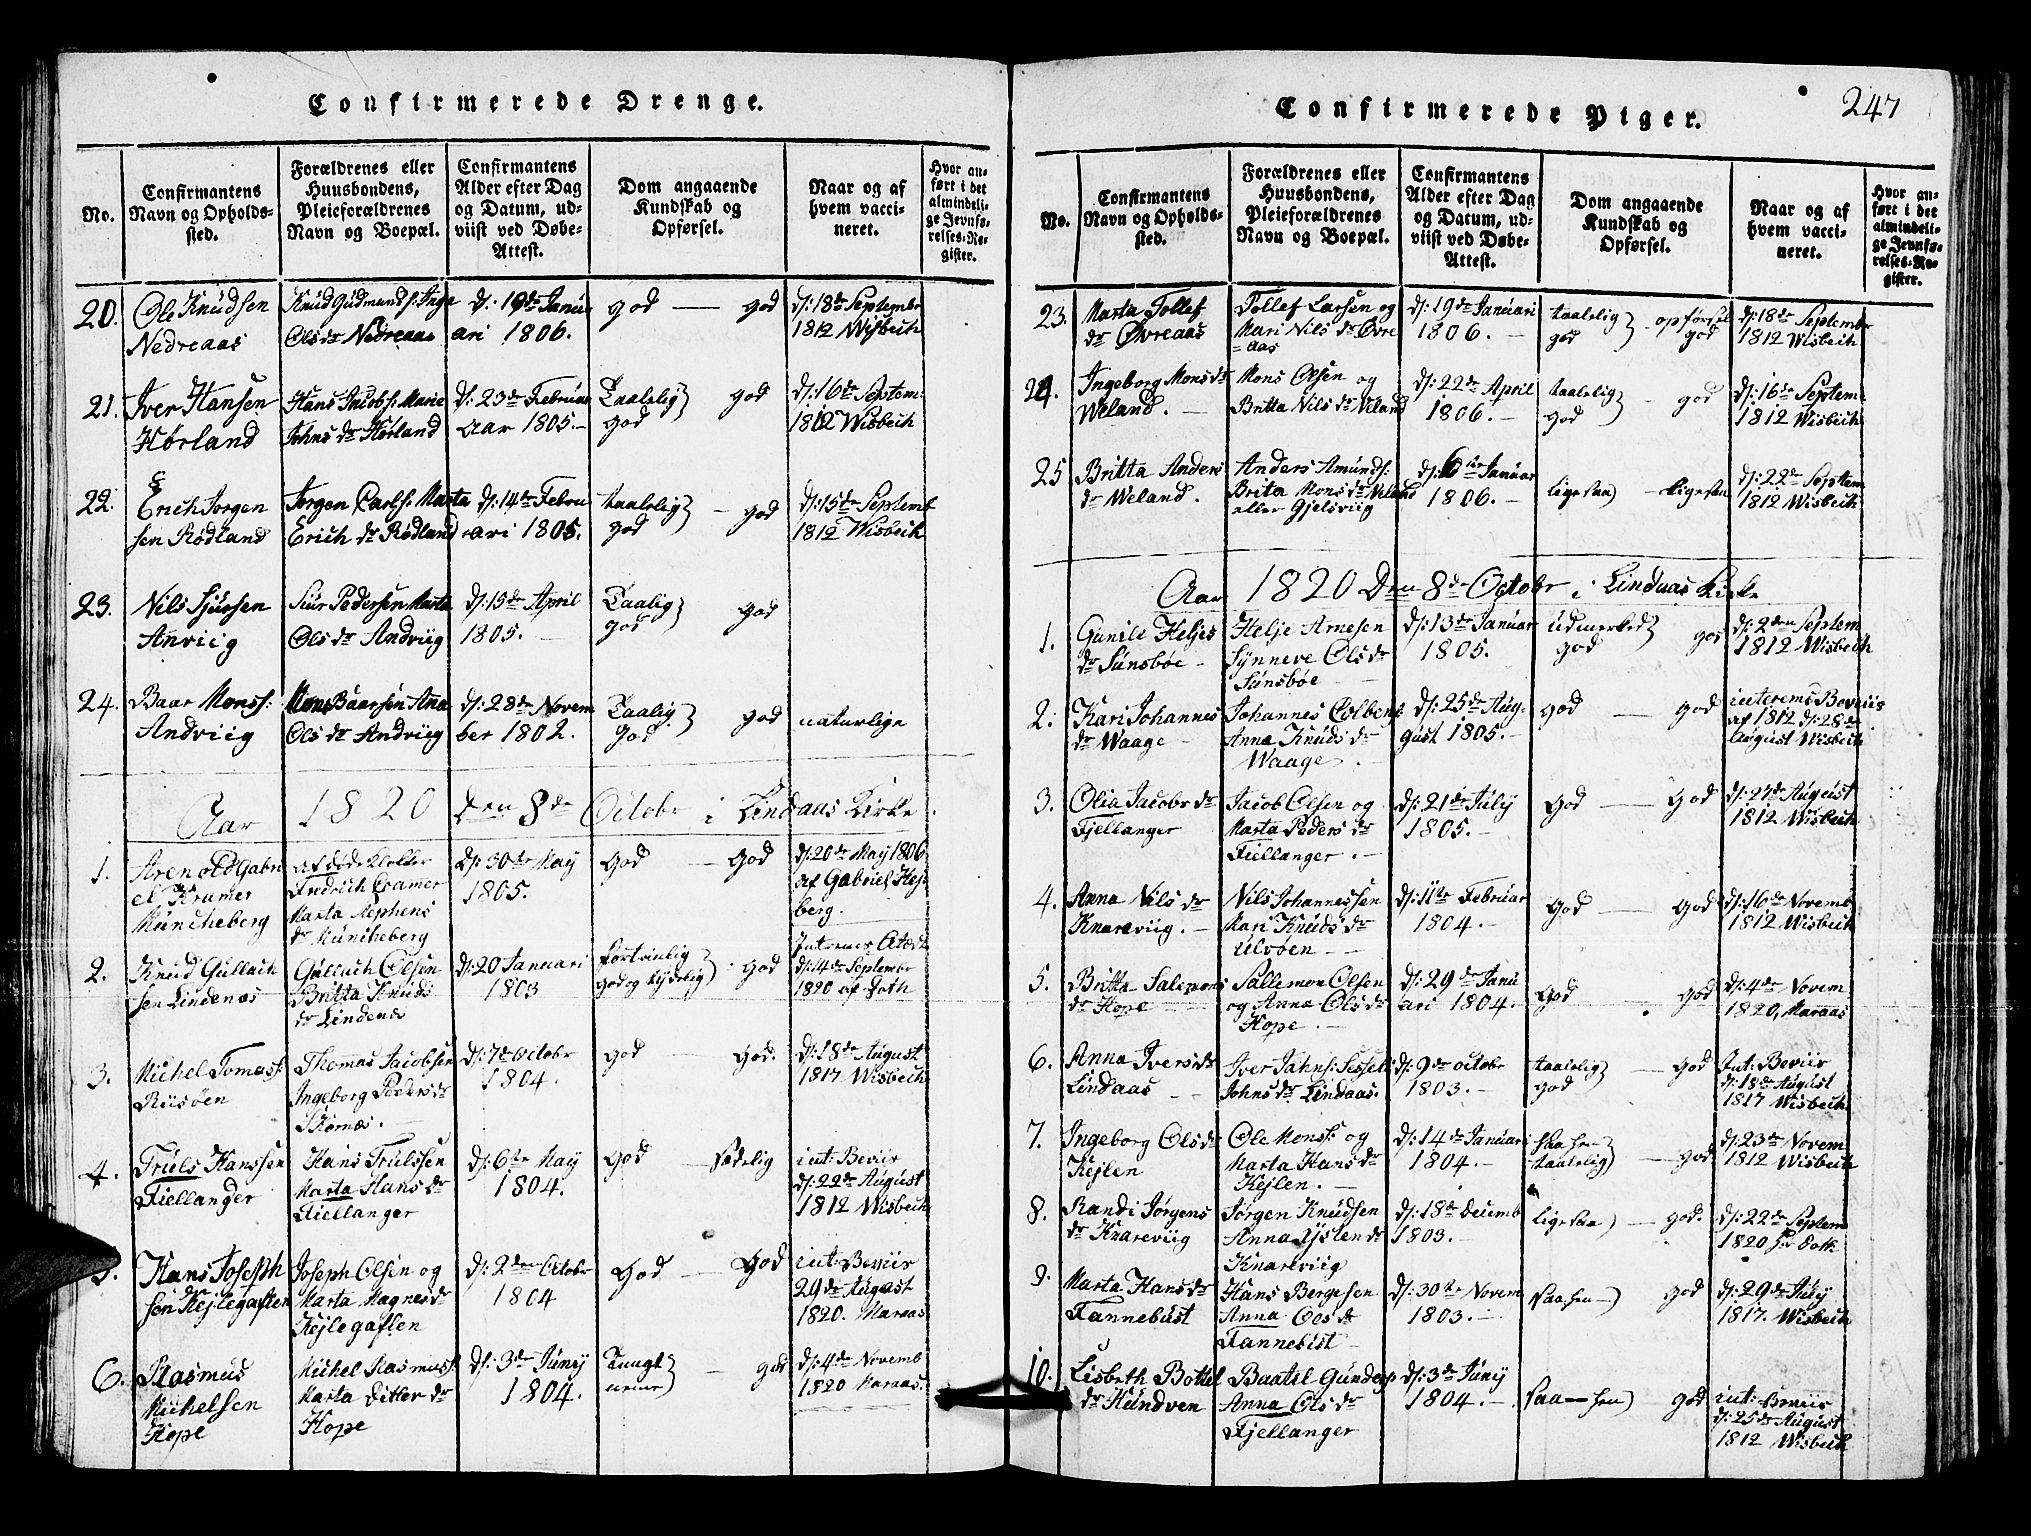 Confirmerede Drenge.
No.
Confirmantens
Navn og Opholds-
sted.
Forældrenes eller
Huusbondens,
Pleieforældrenes
Navn og Boepæl.
Confirmantens
Alder efter Dag
og Datum, ud-
viist ved Døbe-
Attest.
Dom angaaende
Kundskab og
Opførsel.
Naar og af
hvem vacci-
neret.
Hvor an-
ført i det
almindeli-
ge Jevnfø-
relses-Re-
gister.
20. Ole Knudsen
Nedreaas
Knud Gudmunds: Inga
Ols dr Nedreaas
d: 19de Janu
ari 1806.
god — god
d: 18de Septembr
1812 Wisbech
21. Iver Hansen
Hørland
Hans Jacobs: Marie
Johns dr Hørland
d: 23de Februar
Aar 1805.
Taalelig
god
god
d: 16de Septem:
1812 Wisbech
22. Erich Jorgen
sen Rødland
Jorgen Carls: Marta
Erich dr Rødland
d: 14de Febru
ari 1805.
taalelig
god
— god
d: 15de Septemb
1812 Wisbech
23. Nils Sjursen
Anviig
Siur Pedersen Marta
Ols dr Andviig
d: 15de April
1805.
Taalig
god
god
24. Baar Monss:
Andviig
Mons Baarsen Ana
Ols dr Andviig
d: 28de Novem
ber 1802.
Taalig
god
god
naturlige
Aar 1820 Den 8de Octobr i Lindaas Kirke.
1. Arenold Gabri
el Kramer
Müncheberg
afdøde Kloker
Fredrich Cramer
Marta Stephens
dr Müncheberg
d: 30te May
1805.
god — god
d: 20de May 1806
af Gabriel Hej
berg.
2. Knud Gullach
sen Lindenæs
Gullach Olsen
Britta Knuds
dr Lindenæs
d: 20 Januari
1803
fortrinlig
god og lydelig
god
d: 14de Septembr
1820 af Foth
3. Michel Tomass:
Riisøen
Thomas Jacobsen
Ingeborg Peders dr
d: 7de Octobr
1804.
god god.
d: 18de August
1817 Wisbech
4. Truls Hanssen
Fiellanger
Hans Trulssen
Marta Hans dr
Fiellanger
d: 6te May
1804.
god — sædelig
int: Beviis
d: 22de August
1812 Wisbech
5. Hans Joseph
sen Kejlegaften
Joseph Olsen og
Marta Magnes dr
Kejlegaften
d: 2den Octobr
1804
God — God
int: Beviis
29de August
1820. Maraas
6. Rasmus
Michelsen
Hope
Michel Rasmuss:
Marta Ditter dr
Hope
d: 3de Juny
1804.
Tungt
nemme
— god
d: 4de Novemb
1820 Maraas.
Confirmerede Piger.
247
No.
Confirmantens
Navn og Opholds-
sted.
Forældrenes eller
Huusbondens,
Pleieforældrenes
Navn og Boepæl.
Confirmantens
Alder efter Dag
og Datum, ud-
viist ved Døbe-
Attest.
Dom angaaende
Kundskab og
Opførsel.
Naar og af
hvem vacci-
neret.
Hvor an-
ført i det
almindeli-
ge Jevnfø-
relses-Re-
gister.
23. Marta Tollef
dr Øvreaas
Tollef Larsen og
Mari Nils dr Øvre
=aas
d: 19de Januari
1806. —
taalelig
god
- opførsel
god
d: 18de Septembr
1812 Wisbech
24. Ingeborg Mons dr
Weland. —
Mons Olsen og
Britta Nils dr Weland
d: 22de April
1806. —
taalelig
god
— god
d: 16de Septemb
1812 Wisbech
25 Britta Anders
dr Weland.
Anders Amunds:
Brita Mons dr Weland
eller Gjelsviig
d: 6te Januar
1806. —
ligesaa — ligesaa
d: 22de Septem
1812 Wisbech
Aar 1820 Den 8de Octobr i Lindaas Kirke
1. Gunile Heljes
dr Sunsbøe —
Helje Arnesen
Synneve Ols dr
Sunsbøe —
d: 13de Januar
1805.
udmerked
god
god
d: 2den Septem
1812 Wisbech
2. Kari Johannes
dr Waage —
Johannes Colbens
Anna Knuds dr
Waage.
d: 25de Aug-
gust 1805. —
god — god
interems Beviis
af 1812 d: 28de
August Wisbech
3. Olia Jacobs dr
Fjellanger
Jacob Olsen og
Marta Peders dr
Fiellanger. —
d: 21de July
1805. —
God — God
d: 27de August
1812 Wisbech
4. Anna Nils dr
Knareviig. —
Nils Johannessen
Mari Knuds dr
Ulvøen —
d: 11te Februar
1804. —
God — God
d: 16de Novemb
1812 Wisbech
5. Britta Salemons
dr Hope —
Sallemon Olsen
og Anna Ols dr
Hope. —
d: 29de Janu
ari 1804.
God — god
d: 4de Novem
1820, Maraas
6. Anna Ivers dr
Lindaas —
Iver Jahns:
Johns dr Lindaas.
d: 9de octobr
1803. —
taalelig
god
— god
Int: Beviis
d: 18de August
1817 Wisbech
7. Ingeborg Ols dr
Kejlen
Ole Monss: og
Marta Hans dr
Kejlen. —
d: 14de Januari
1804. —
saasen
taalelig
— god
d: 23de Novem
1812 Wisbech
8. Randi Jørgens
dr Knareviig
Jørgen Knudsen
Anna Øysten dr
Knareviig
d: 18de Decemb
1803. —
ligesaa — god.
d: 22de Septem
1820
9. Marta Hans dr
Fannebust
Hans Bergesen
Anna Ols dr
Fannebust
d: 30te Novem
1803. —
saasen — god
d: 29de July
1817. Wisbech
10. Lisbeth Bottel
dr Hundven
Baatel Gunders
Anna Ols dr
Fjellanger
d: 3de Juny
1804. —
saa—sen god
int: Beviis
d: 25de August
1812 Wisbech